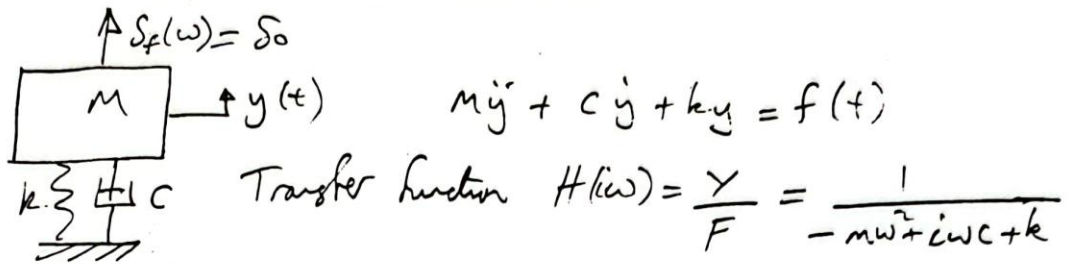 S_f(ω) = S₀
M
y(t)
mÿ + cẏ + k.y = f(t)
k
c
Transfer function H(iω) = Y/F = 1/(-mω² + iωc + k)